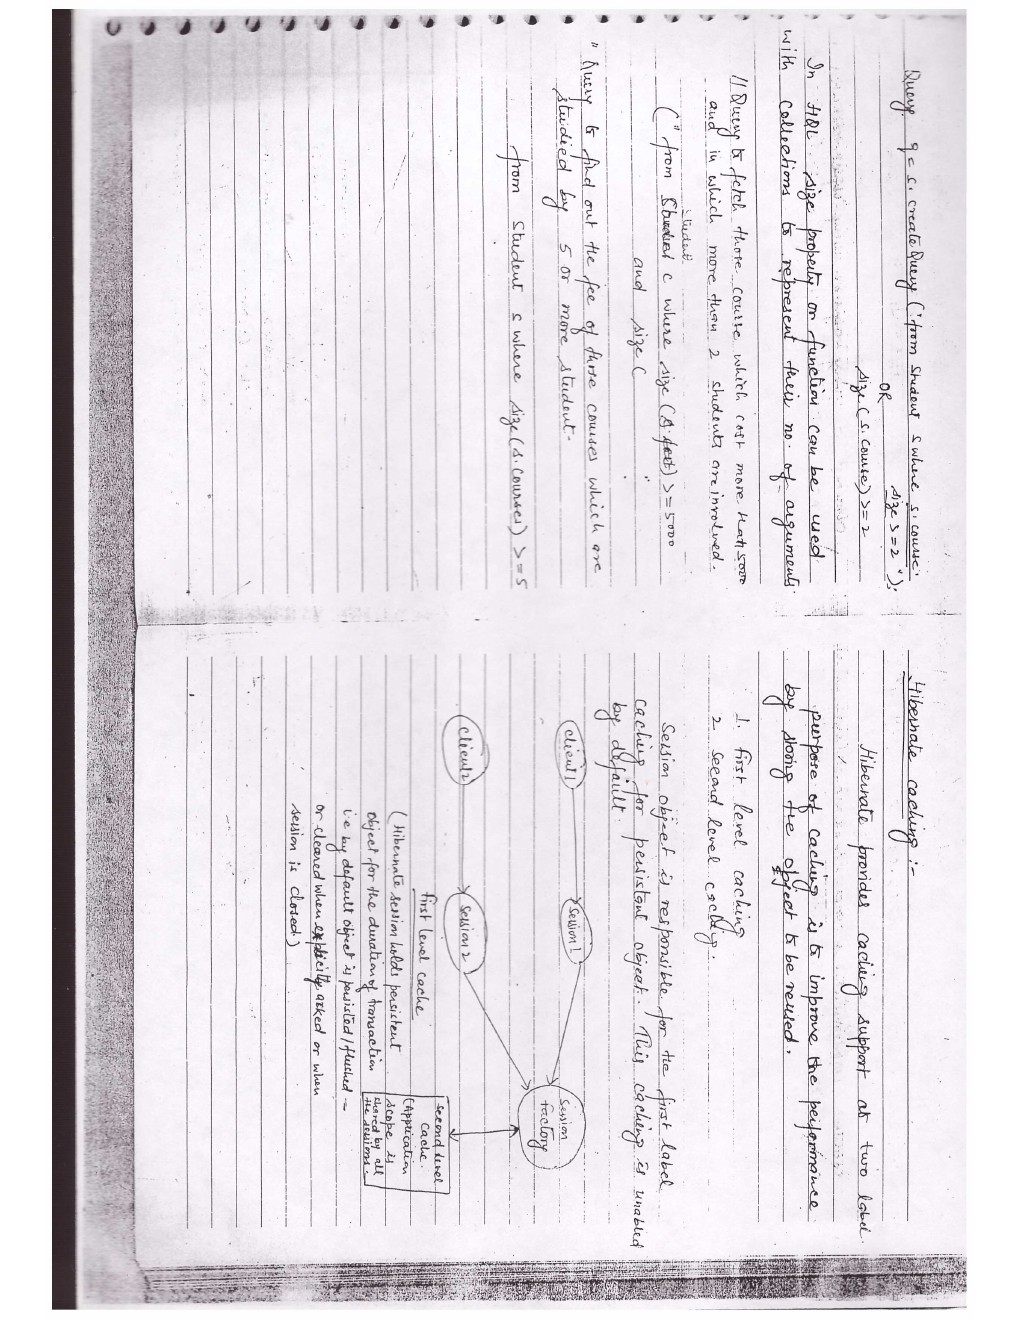 Query q = s.createQuery("from Student s where s.course.
size >= 2");
OR
size (s.course) >= 2
In HQL size property or function can be used
with collections to represent their no. of arguments.
// Query to fetch those course which cost more that 5000
and in which more than 2 students are involved.
student
(" from c where size (s. ) >= 5000
and size ( "
" Query to find out the fee of those courses which are
studied by 5 or more student.
from Student s where size (s.courses) >= 5
Hibernate caching :-
Hibernate provides caching support at two label.
purpose of caching is to improve the performance
by storing the object to be reused.
1. first level caching
2 second level caching.
Session object is responsible for the first label
caching for persistent object. This caching is unabled
by default
client 1
session 1
client 2
session 2
Session
factory
first level cache
(Hibernate session holds persistent
object for the duration of transaction
i.e by default object is persisted/flushed -
or cleared when explicitly asked or when
session is closed.)
second level
cache.
(Application
scope is
shared by all
the sessions.